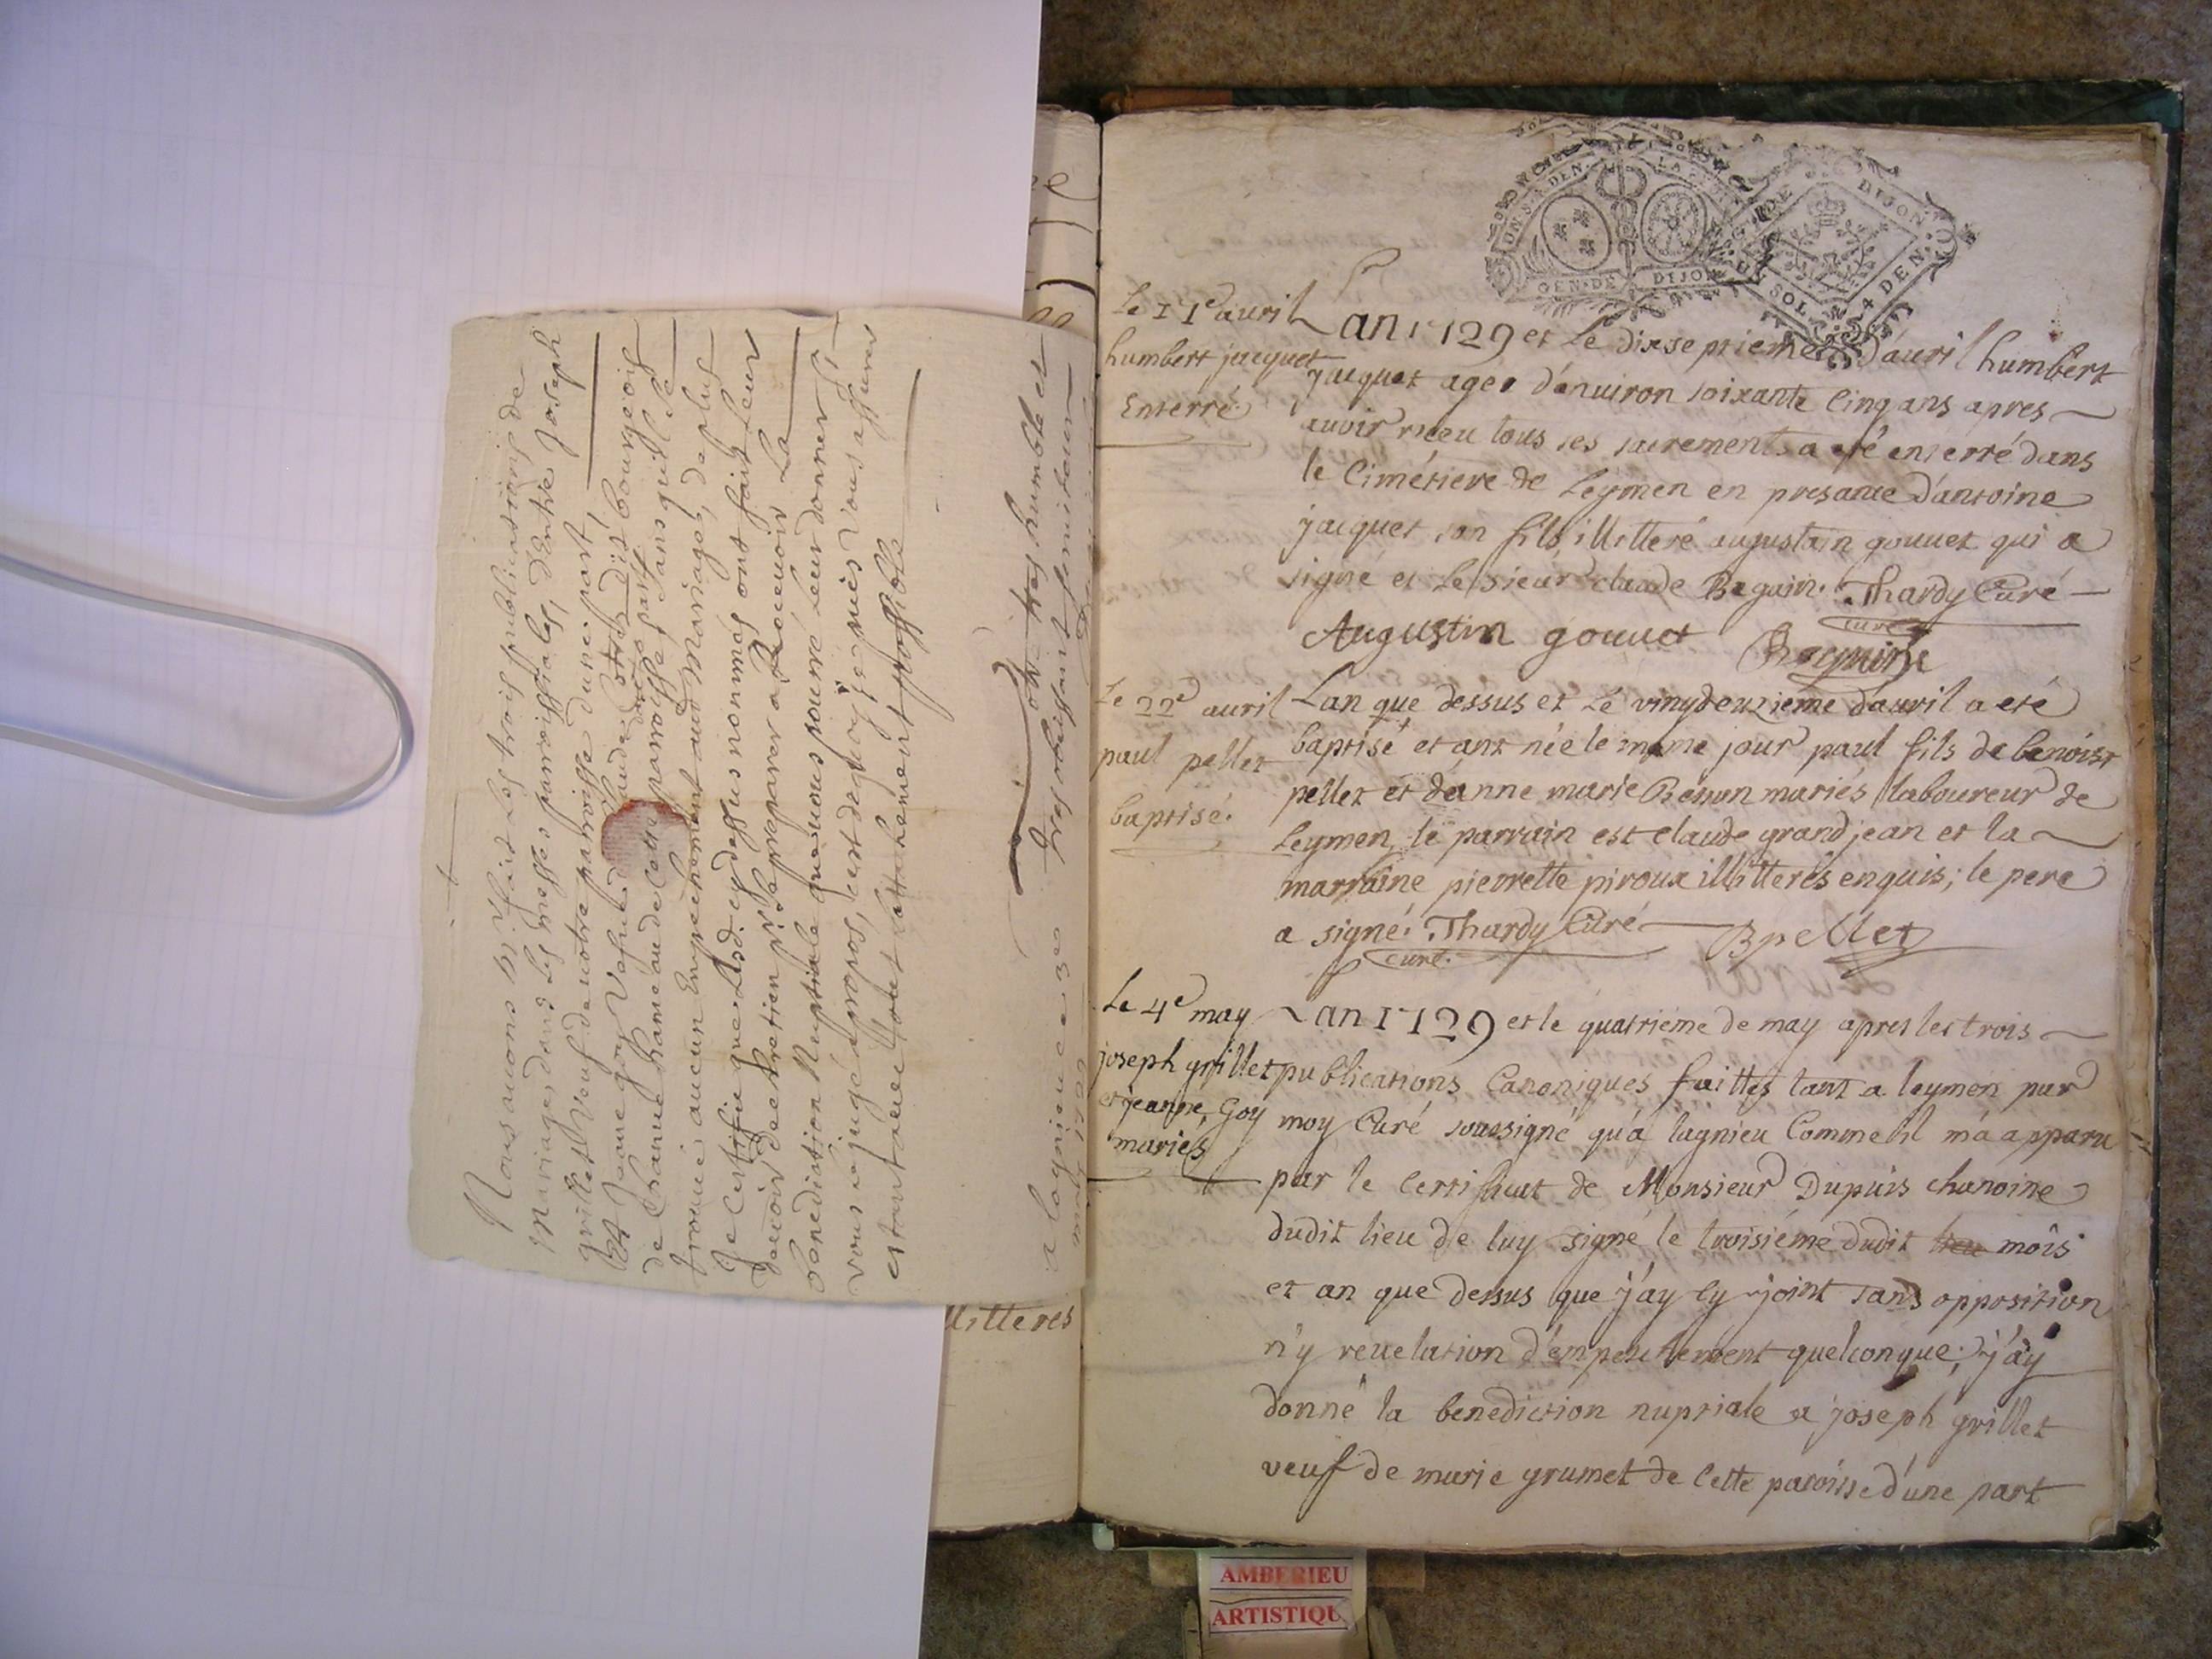 Nous auons fait les trois publications de
Mariages dans les messes parroissiales, d'Entre Joseph
grillet Veuf de notre parroisse d'une part,
Et Jeanne goy Vefue claude dit bourgeois
de Chanue hameau de Cette parroisse sans qu'il se
trouué aucun Empechement aud. Mariage, de plus
Je Certifie que Lesd. cydessus nommés ont fait leur
deuoir de chretien pr. se preparer a Receuoir La
benediction Nuptiale que uous pourré Leur donner si
vous le jugé a propos, c'est de quoy je uiés Vous assurer
estant auec tout l'attachement possible
Votre tres humble et
tres obeissant seruiteur
a lagnieu ce 3e
may 1729
illitteres
UN S. 4 DEN.
GEN. DE DIJON
G. DE DIJON
UN SOL 4 DEN.
Le 17e auril
humbert jacquet
Enterré.
Lan 1729 et Le dixseptieme d'auril humbert
jacquet agé d'enuiron soixante Cinq ans apres
auoir receu tous ses sacrements a eté enterré dans
le Cimétiere de Leymen en presance d'antoine
jacquet son fils illitteré augustain gouuet qui a
signé et Le sieur claude Beguin. Thardy Curé
curé
Augustin gouuet
Le 22e auril
paul pellet
baptisé.
Lan que dessus et Le vingdeuzieme d'auril a eté
baptisé etant né le mame jour paul fils de benoist
pellet et d'anne marie Benon mariés laboureur de
Leymen, le parrain est claude grandjean et la
marraine pierrette piroux illitterés enquis; le pere
a signé. Thardy Curé
curé.
B pellet
Le 4e may
joseph grillet
et jeanne Goy
mariés
Lan 1729 et le quatriéme de may apres les trois
publications Canoniques faittes tant a leymen par
moy Curé soussigné qu'a lagnieu Comme Il m'a apparu
par le Certificat de Monsieur Dupuis chanoine
dudit lieu de luy signé le troisiéme dudit lieu mois
et an que dessus que j'ay cy joint sans opposition
n'y reuelation d'empechement quelconque; j'ay
donné la benediction nuptiale a joseph grillet
veuf de marie grumet de Cette paroisse d'une part
AMBERIEU
ARTISTIQU